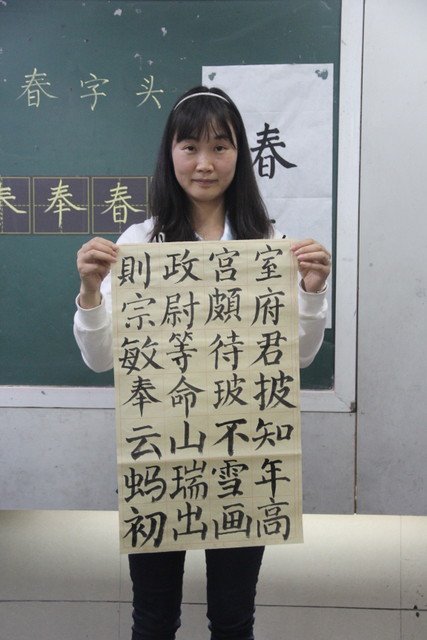 春字头
奉春
春
則政宫室
宗尉頗府
敏等待君
奉命玻披
云山不知
蚂瑞雪年
初出画高